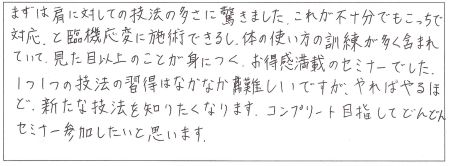 まずは肩に対しての技法の多さに驚きました。これが不十分でもこっちで
対応、と臨機応変に施術できるし、体の使い方の訓練が多く含まれ
ていて、見た目以上のことが身につく、お得感満載のセミナーでした。
1つ1つの技法の習得はなかなか難しいですが、やればやるほ
ど、新たな技法を知りたくなります。コンプリート目指してどんどん
セミナー参加したいと思います。